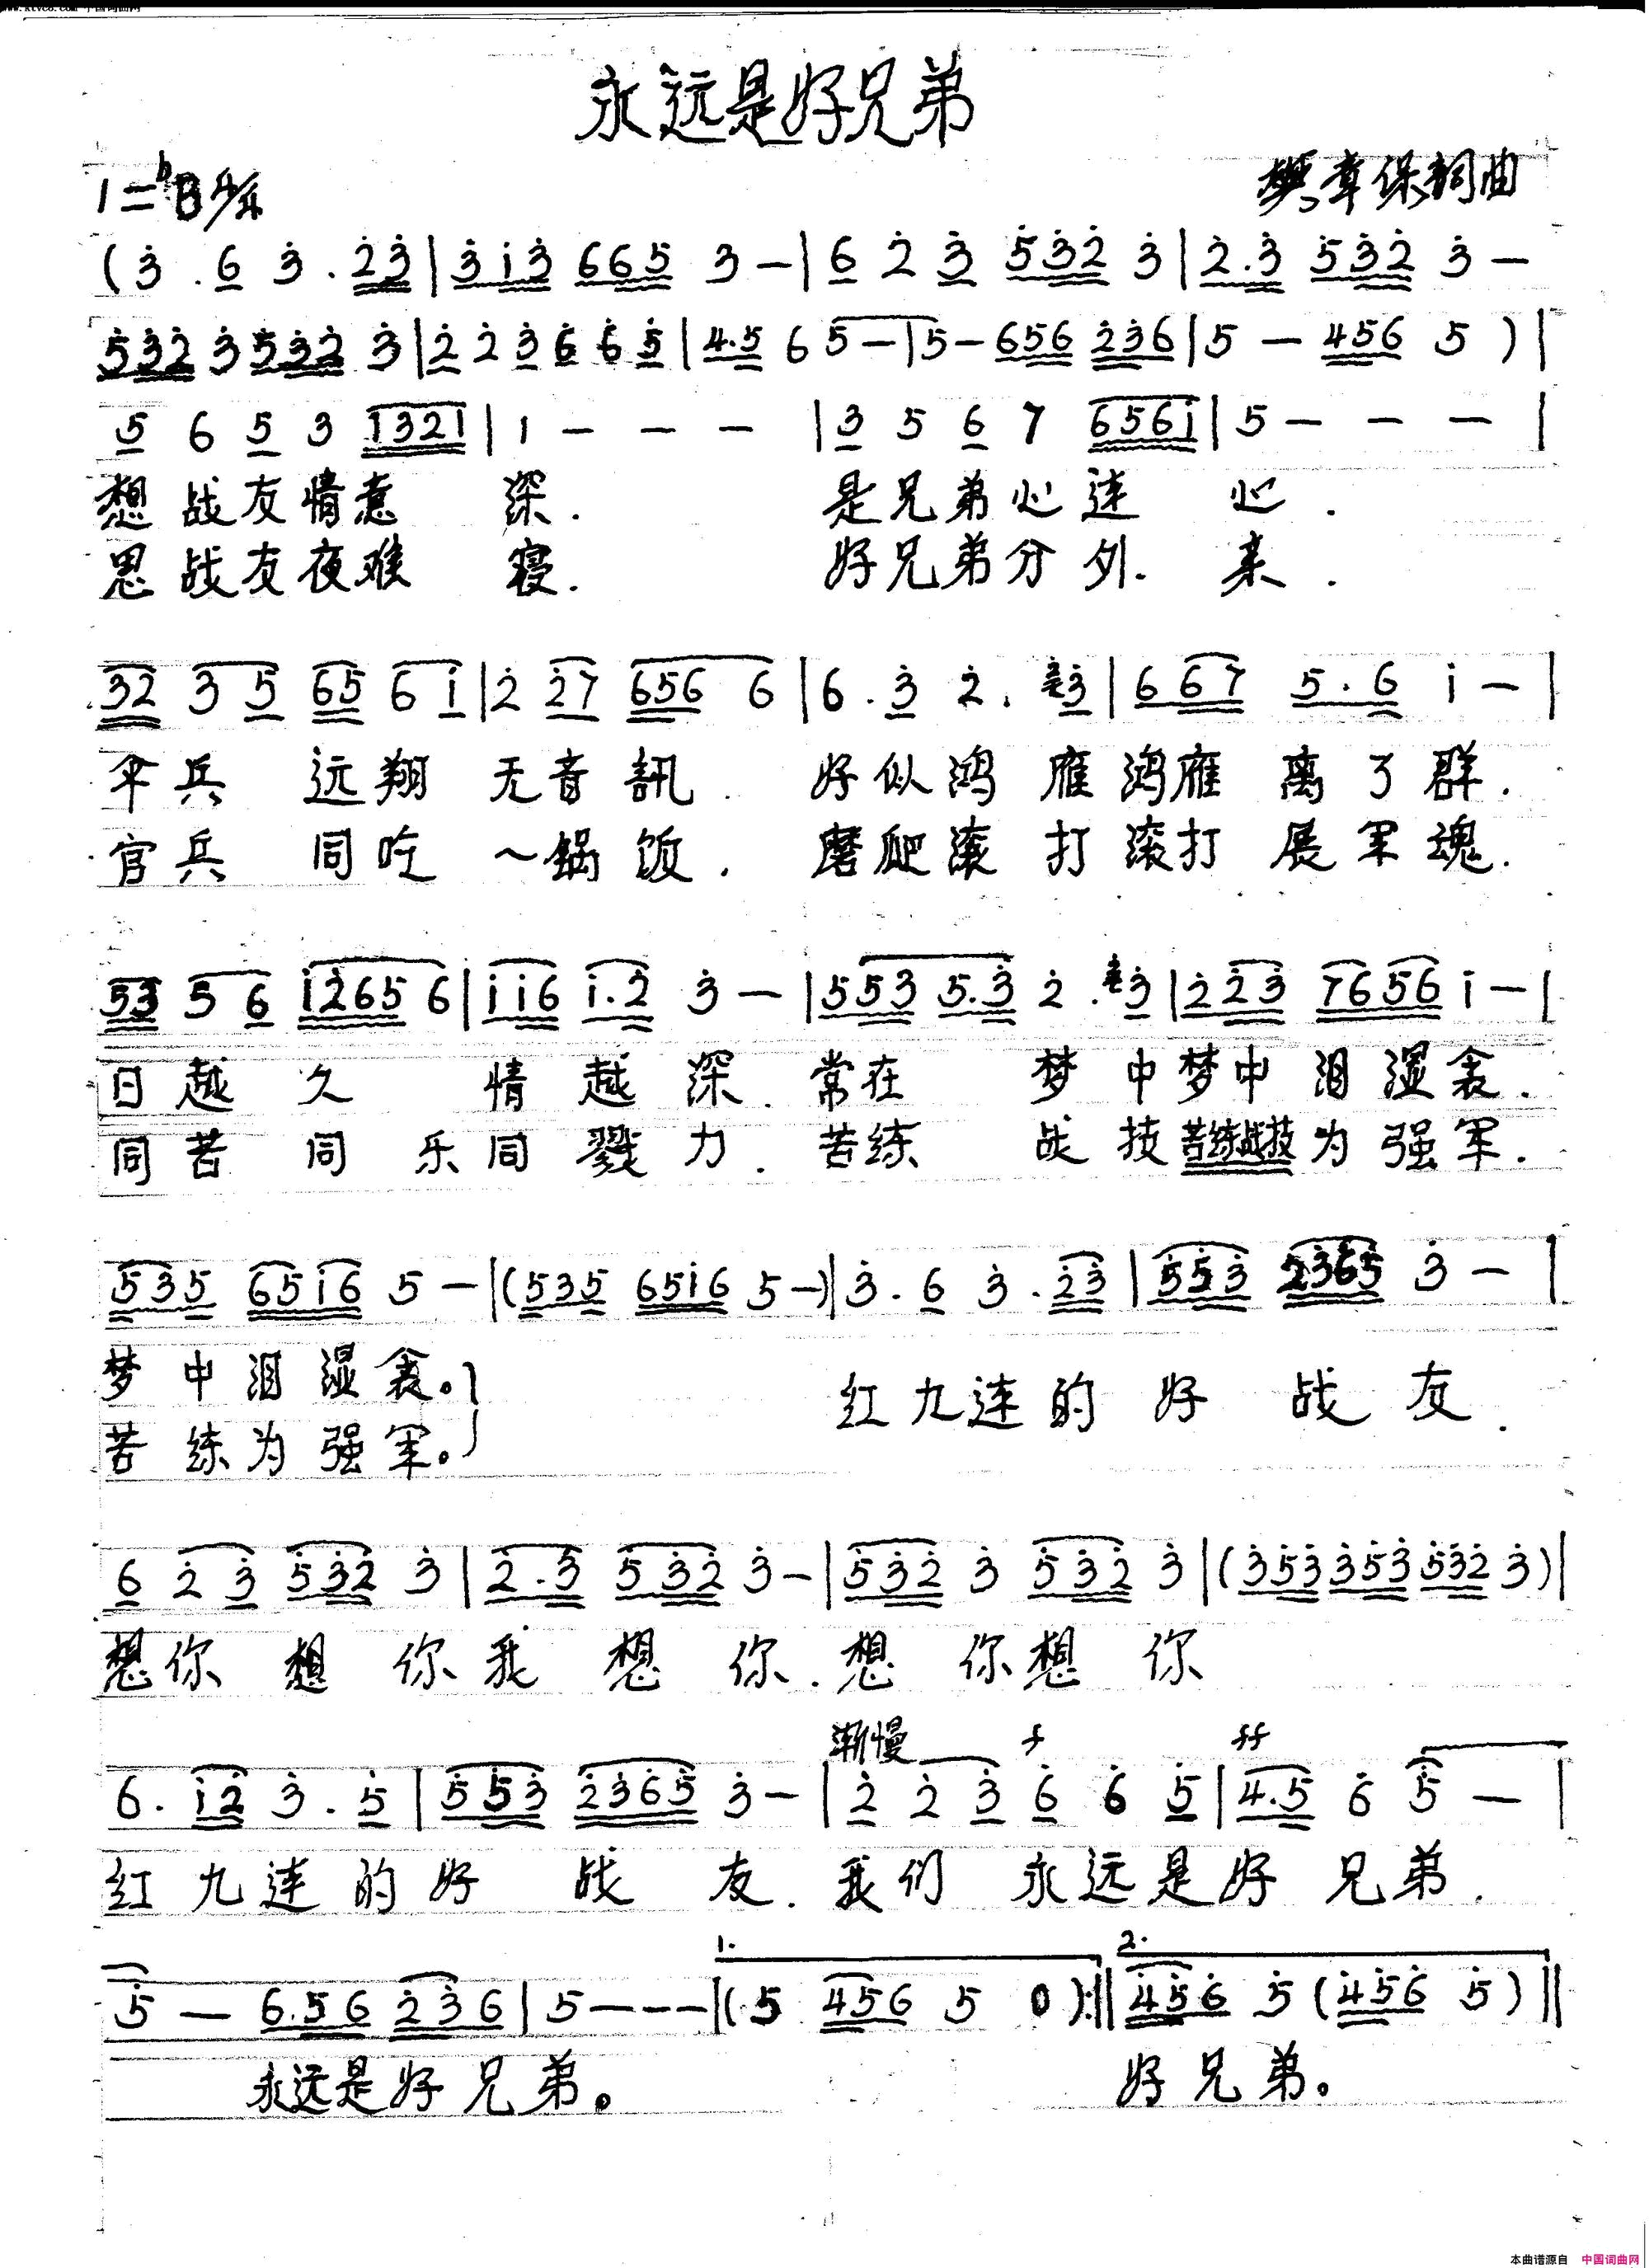 www.ktvc8.com 中国词曲网
永远是好兄弟
1=♭B 4/4
樊章保词曲
(3̇ . 6 3̇ . 2̇3̇ | 3̇i3̇ 665 3 — | 6 2̇ 3̇ 5̇3̇2̇ 3̇ | 2̇.3̇ 5̇3̇2̇ 3̇ —
5̇3̇2̇ 3̇ 5̇3̇2̇ 3̇ | 2̇ 2̇ 3̇ 6̇ 6̇ 5̇ | 4.5 6 5 — | 5 — 656 2̇3̇6 | 5 — 456 5 ) |
5 6 5 3 1321 | 1 — — — | 3 5 6 7 656i | 5 — — — |
想战友情意 深. 是兄弟心连 心.
思战友夜难 寝. 好兄弟分外. 亲.
32 3 5 65 6 i | 2̇ 2̇7 656 6 | 6 . 3̇ 2̇ . 3̇ | 667 5.6 i — |
伞兵 远翔 无音訊. 好似鸿 雁鸿雁 离了群.
官兵 同吃 一锅饭. 磨爬滚 打滚打 展军魂.
53 5 6 i2̇65 6 | ii6 i.2̇ 3̇ — | 5̇5̇3̇ 5̇.3̇ 2̇ . 3̇ | 2̇2̇3̇ 7656 i — |
日越 久 情越深. 常在 梦中梦中 泪湿衾.
同苦 同 乐同戮力. 苦练 战技苦练战技为强军.
535 65i6 5 — | (535 65i6 5 —) | 3̇ . 6 3̇ . 2̇3̇ | 5̇5̇3̇ 2̇3̇6̇5̇ 3̇ — |
梦中泪湿衾。
红九连的好 战友.
苦练为强军。
6 2̇ 3̇ 5̇3̇2̇ 3̇ | 2̇.3̇ 5̇3̇2̇ 3̇ — | 5̇3̇2̇ 3̇ 5̇3̇2̇ 3̇ | (3̇5̇3̇ 3̇5̇3̇ 5̇3̇2̇ 3̇) |
想你 想 你我 想 你. 想 你想 你
渐慢 f ff
6. i2̇ 3̇ . 5̇ | 5̇5̇3̇ 2̇3̇6̇5̇ 3̇ — | 2̇ 2̇ 3̇ 6̇ 6̇ 5̇ | 4̇.5̇ 6̇ 5̇ — |
红九连的好 战 友. 我们 永远是好 兄弟.
1. 2.
5̇ — 6.56 2̇3̇6 | 5 — — — | (5 456 5 0) :‖ 4̇5̇6̇ 5̇ (4̇5̇6̇ 5̇) ‖
永远是好兄弟。 好兄弟。
本曲谱源自 中国词曲网